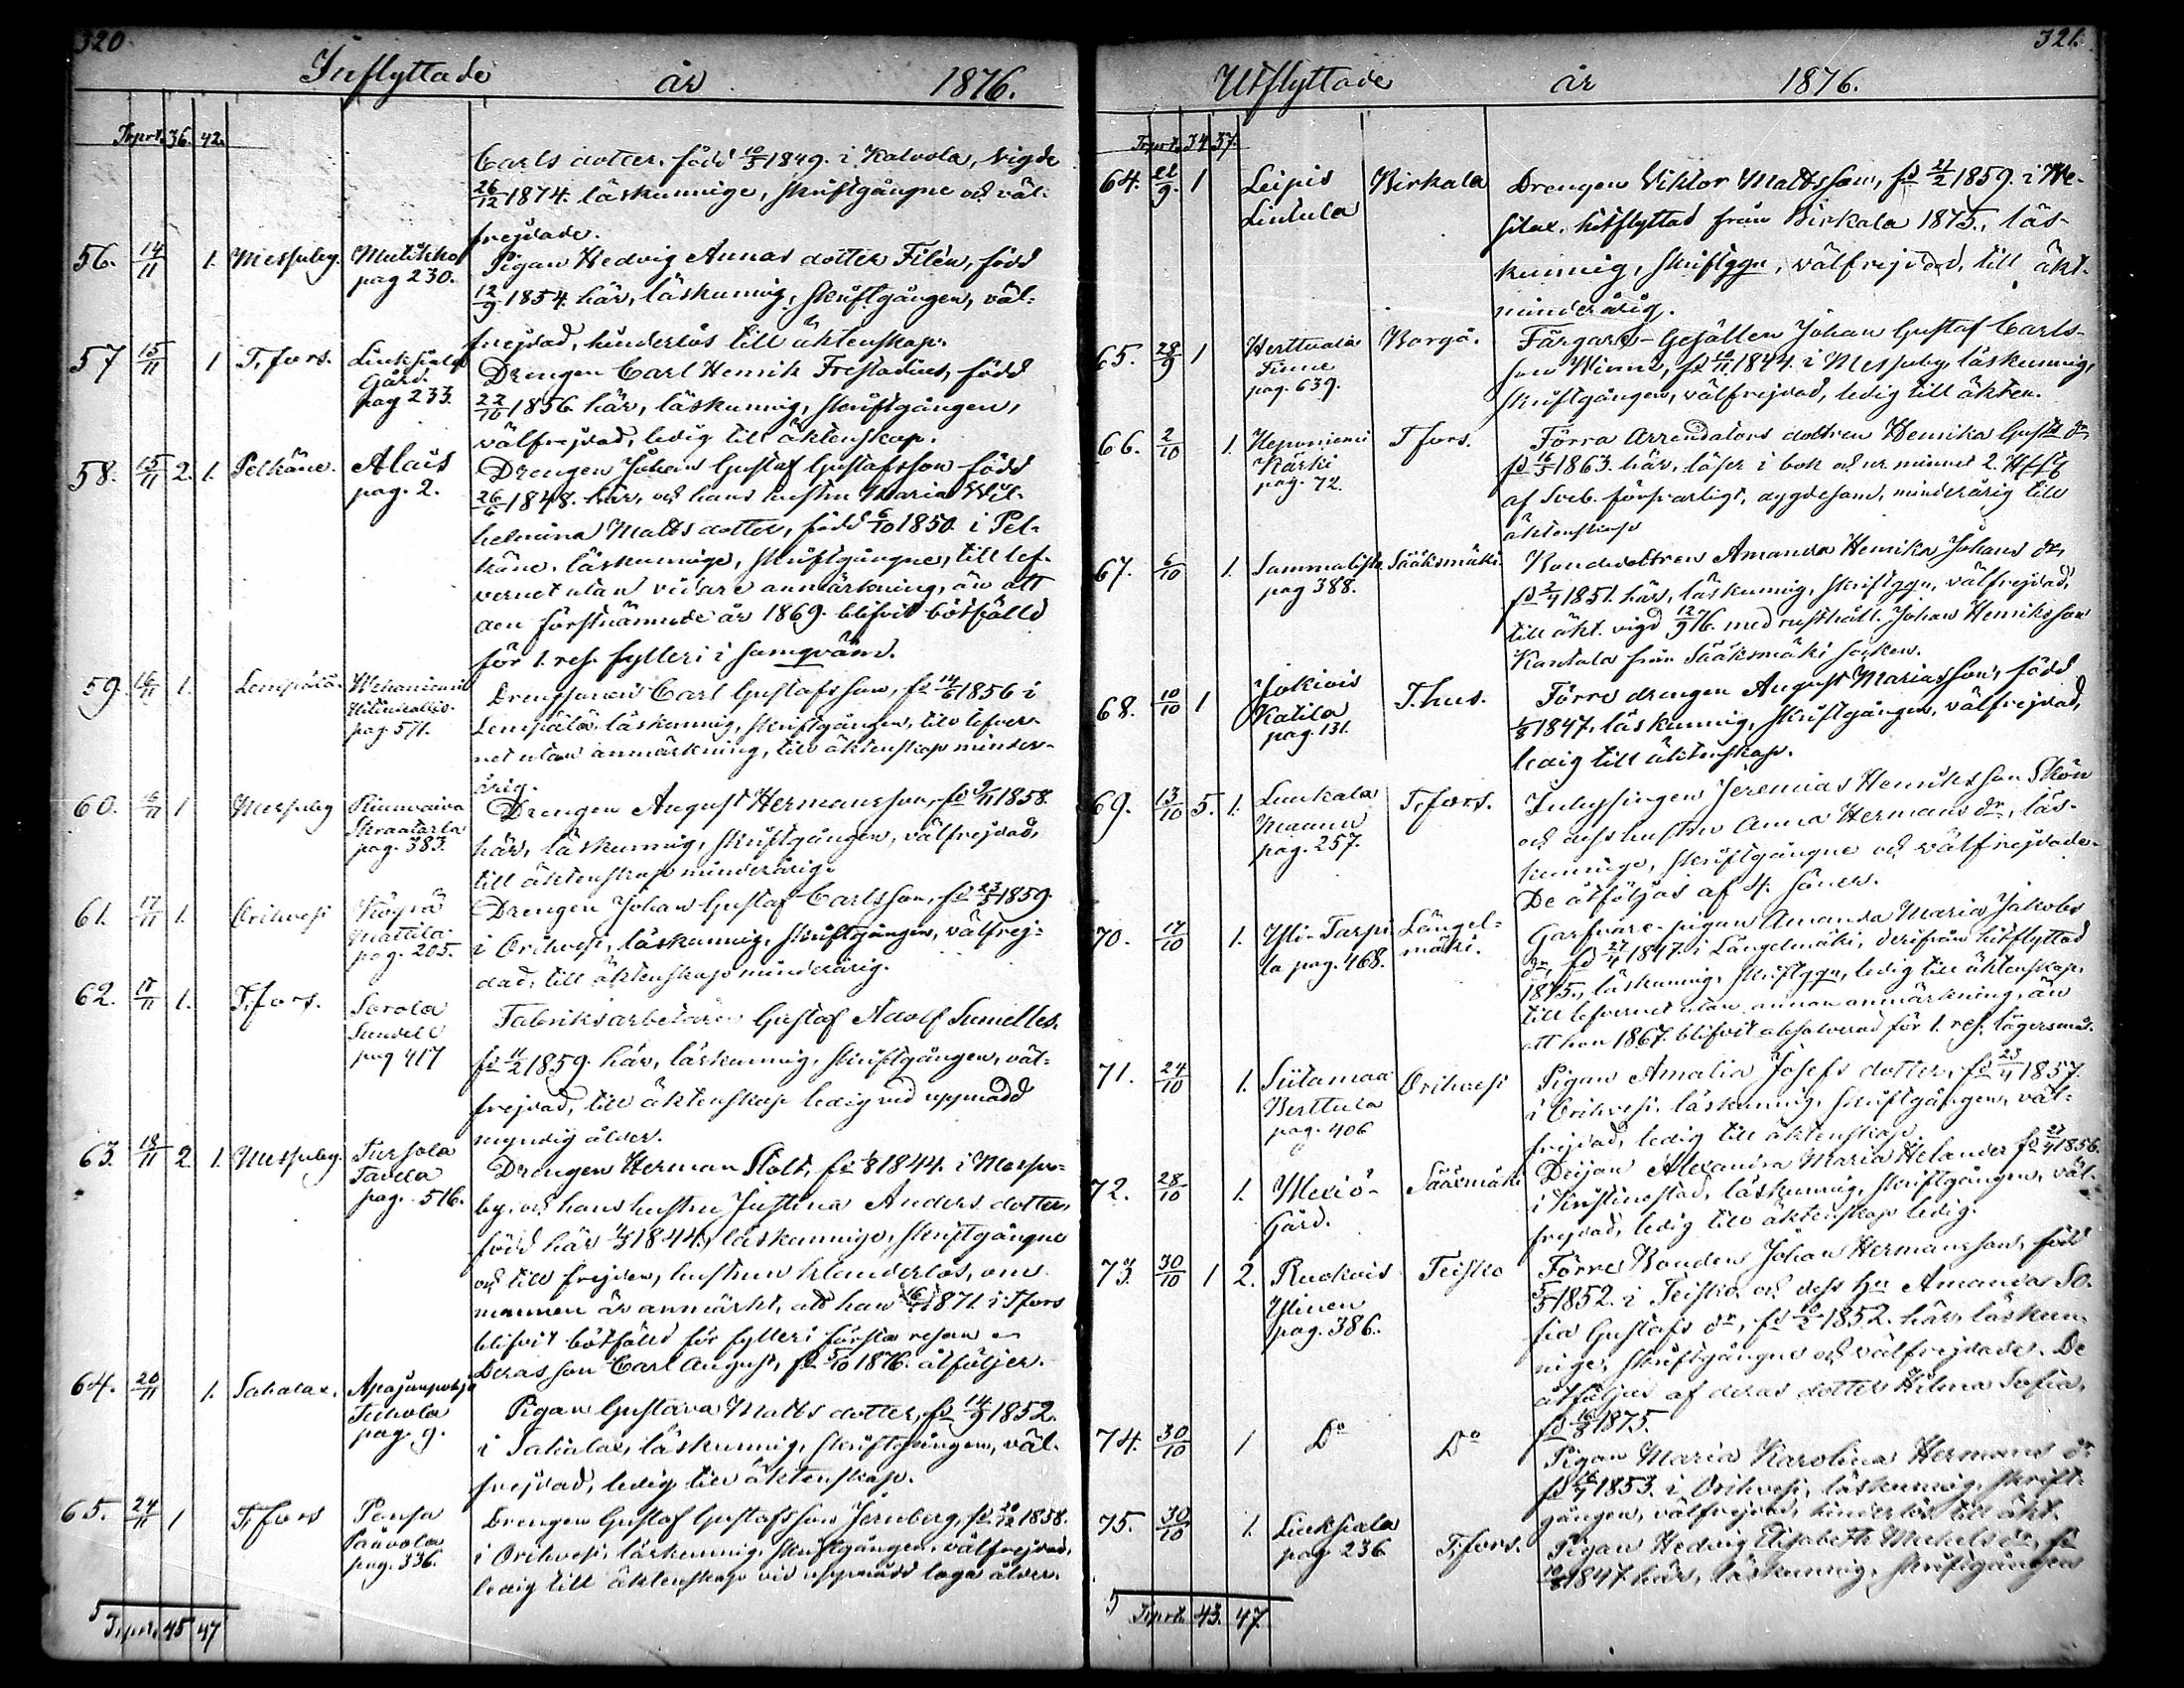 320.
Inflyttade år 1876.
Trprt. 36. 42.
Carls dotter, född 10/5 1849. i Kalvola, vigde
26/12 1874. läskunnige, skriftgångne och väl-
frejdade.
56. 14/11 1. Messuby. Mutikko pag 230. Pigan Hedvig Annas dotter Filén, född
12/9 1854. här, läskunnig, skriftgången, väl-
frejdad, hinderlös till äktenskap.
57 15/11 1 T.fors. Liuksiala Gård. pag 233. Drengen Carl Henrik Frestadius, född
22/10 1856 här, läskunnig, skriftgången,
välfrejdad, ledig till äktenskap.
58. 15/11 2. 1. Pelkäne. Alais pag. 2. Drengen Johan Gustaf Gustafsson född
26/6 1848. här, och hans hustru Maria Wil-
helmina Matts dotter, född 6/10 1850. i Pel-
käne. läskunnige, skriftgångne, till lef-
vernet utan vidare anmärkning, än att
den förstnämnde år 1869. blifvit bötfälld
för 1. res. fylleri i samqväm.
59. 16/11 1. Lempäälä. pag. 571. Drengsonen Carl Gustafsson, fd 14/6 1856 i
Lempäälä, läskunnig, skriftgången, till lefver-
net utan anmärkning, till äktenskap minder-
årig.
60. 16/11 1 Messuby pag. 383. Drengen August Hermansson, fd 9/11 1858.
här, läskunnig, skriftgången, välfrejdad,
till äktenskap minderårig.
61. 17/11 1. Orihvesi Köyrä Mattila pag. 205. Drengen Johan Gustaf Carlsson, fd 23/5 1859.
i Orihvesi, läskunnig, skriftgången, välfrej-
dad, till äktenskap minderårig.
62. 18/11 1. T.fors. Sorola Sundell pag 417 Fabriksarbetaren Gustaf Adolf
fd 11/2 1859. här, läskunnig, skriftgången, väl-
frejdad, till äktenskap ledig vid uppnådd
myndig ålder.
63. 18/11 2 1. Messuby. Tursola Tavela pag. 516. Drengen Herman Stolt, fd 1/8 1844. i Messu-
by, och hans hustru Justina Anders dotter,
född här 4/3 1844, läskunnige, skriftgångne
och till frejden, hustrun klanderlös, om
mannen är anmärkt, att han 1871. i Tfors
blifvit bötfälld för fylleri första resan
Deras son Carl August, fd 5/10 1876. åtföljer.
64. 20/11 1. Sahalax. pag. 9. Pigan Gustava Matts dotter, fd 14/9 1852.
i Sahalax, läskunnig, skriftgången, väl-
frejdad, ledig till äktenskap.
65. 24/11 1 T.fors Ponsa Päivola pag. 336. Drengen Gustaf Gustafsson Jernberg, fd 20/12 1858.
i Orihvesi, läskunnig, skriftgången, välfrejdad,
ledig till äktenskap vid uppnådd laga ålder.
Trprt. 45 47
321.
Utflyttade år 1876.
Trprt. 34 37.
64. 22/9. 1 Leipis Liutula Birkala Drengen Viktor Mattsson, fd 22/2 1859. i We-
silax, hitflyttad från Birkala 1875., läs-
kunnig, skriftggn, välfrejdad, till äkt.
minderårig.
65. 28/9 1 Herttuala Finne pag. 639. Borgå. Färgare-Gesällen Johan Gustaf Carls-
son Winne, fd 10/11 1844. i Messuby, läskunnig,
skriftgången, välfrejdad, ledig till äkten.
66. 2/10 1. Heponiemi Kärki pag. 72. T.fors. Förra Arrendators dottren Henrika Gusts dr,
fd 16/5 1863. här, läser i bok och ur minnet 2. Hfstg
af Sveb. försvarligt, dygdesam, minderårig till
äktenskap
67. 6/10 1. Sammaliste pag 388. Sääksmäki. Bondedottren Amanda Henrika Johans dr,
fd 2/1 1851. här, läskunnig, skriftggn, välfrejdad,
till äkt. vigd 12/9 76. med rusthåll. Johan Henriksson
Kantola från Sääksmäki socken.
68. 10/10 1 Jokiois Katila pag. 131. T.hus. Förre drengen August Mariasson, född
1/8 1847. läskunnig, skriftgången, välfrejdad,
ledig till äktenskap.
69. 13/10 5. 1. Liukala Maanu pag. 257. T.fors. Inhysingen Jeremias Henriksson Skön
och dess hustru Anna Hermans dr, läs-
kunnige, skriftgångne och välfrejdade.
De åtföljas af 4. söner.
70. 17/10 1. Yli-Tarpi- la pag. 468. Längel- mäki. Garfvare-pigan Amanda Maria Jakobs
dr, fd 27/4 1847. i Längelmäki, derifrån hitflyttad
1875., läskunnig, skriftggn, ledig till äktenskap,
till lefvernet utan annan anmärkning, än
att hon 1867. blifvit absolverad för 1. res. lägersmål.
71. 24/10 1. Siitamaa Berttula pag. 406 Orihvesi Pigan Amalia Josefs dotter, fd 23/4 1857.
i Orihvesi, läskunnig, skriftgången, väl-
frejdad, ledig till äktenskap.
72. 28/10 1. Wexiö- Gård. Sääxmäki Dejan Alexandra Maria Helander fd 1856.
i Kristinestad, läskunnig, skriftgången, väl-
frejdad, ledig till äktenskap ledig.
73. 30/10 1 2. Ruokois Ylinen pag. 386. Teisko Förre Bonden Johan Hermansson, född
5/5 1852. i Teisko, och dess hu Amanda So-
fia Gustafs dr, fd 1852. här, läskun-
nige, skriftgångne och välfrejdade. De
åtföljas af deras dotter Hilma Sofia,
fd 16/8 1875.
74. 30/10 1 Do Do Pigan Maria Karolina Hermans dr
fd 1853. i Orihvesi, läskunnig, skrift-
gången, välfrejdad, hinderlös till äkt.
75. 30/10 1. Liuksiala pag 236 T.fors. Pigan Hedvig Elisabeth Mickels dr, fd
1847 här, läskunnig, skriftgången
Trprt. 43. 47.